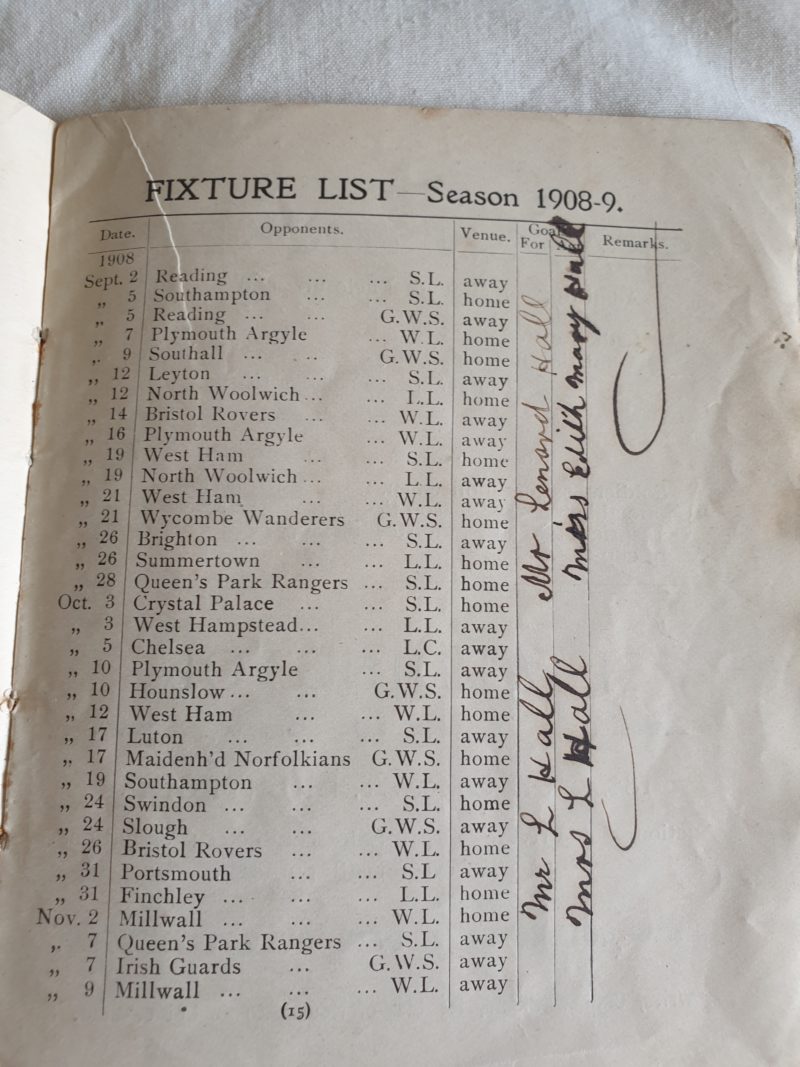 FIXTURE LIST—Season 1908-9.
Date. Opponents. Venue. Goals For Remarks.
1908
Sept. 2 Reading ... ... ... S.L. away
„ 5 Southampton ... ... S.L. home
„ 5 Reading ... ... G.W.S. away
„ 7 Plymouth Argyle ... W.L. home
„ 9 Southall ... ... G.W.S. home
„ 12 Leyton ... ... ... S.L. away
„ 12 North Woolwich ... ... L.L. home
„ 14 Bristol Rovers ... ... W.L. away
„ 16 Plymouth Argyle ... W.L. away
„ 19 West Ham ... ... S.L. home
„ 19 North Woolwich ... ... L.L. away
„ 21 West Ham ... ... W.L. away
„ 21 Wycombe Wanderers G.W.S. home
„ 26 Brighton ... ... ... S.L. away
„ 26 Summertown ... ... L.L. home
„ 28 Queen's Park Rangers ... S.L. home
Oct. 3 Crystal Palace ... ... S.L. home
„ 3 West Hampstead... ... L.L. away
„ 5 Chelsea ... ... ... L.C. away
„ 10 Plymouth Argyle ... S.L. away
„ 10 Hounslow ... ... G.W.S. home
„ 12 West Ham ... ... W.L. home
„ 17 Luton ... ... ... S.L. away
„ 17 Maidenh'd Norfolkians G.W.S. home
„ 19 Southampton ... ... W.L. away
„ 24 Swindon ... ... ... S.L. home
„ 24 Slough ... ... G.W.S. away
„ 26 Bristol Rovers ... ... W.L. home
„ 31 Portsmouth ... ... S.L away
„ 31 Finchley ... ... ... L.L. home
Nov. 2 Millwall ... ... ... W.L. home
„ 7 Queen's Park Rangers ... S.L. away
„ 7 Irish Guards ... G.W.S. away
„ 9 Millwall ... ... ... W.L. away
(15)
Mr L Hall Mr Lenard Hall
Mrs L Hall Miss Edith Mary Hall